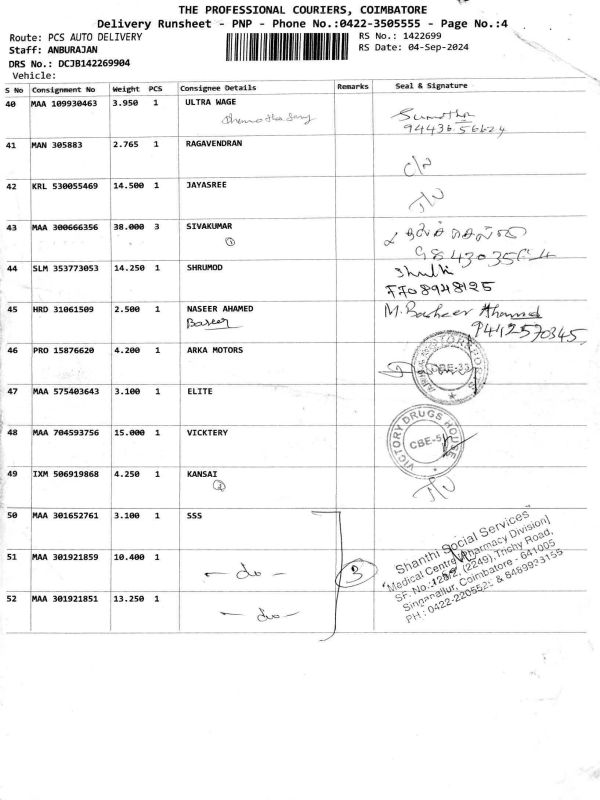 THE PROFESSIONAL COURIERS, COIMBATORE
Delivery Runsheet - PNP - Phone No.:0422-3505555 - Page No.:4
Route: PCS AUTO DELIVERY
RS No.: 1422699
Staff: ANBURAJAN
RS Date: 04-Sep-2024
DRS No.: DCJB142269904
Vehicle:
S No Consignment No Weight PCS Consignee Details Remarks Seal & Signature
40 MAA 109930463 3.950 1 ULTRA WAGE
94436 56624
41 MAN 305883 2.765 1 RAGAVENDRAN
42 KRL 530055469 14.500 1 JAYASREE
43 MAA 300666356 38.000 3 SIVAKUMAR
①
44 SLM 353773053 14.250 1 SHRUMOD
7708948125
45 HRD 31061509 2.500 1 NASEER AHAMED M. Basheer Ahamed
Baseer 9442570345
46 PRO 15876620 4.200 1 ARKA MOTORS
47 MAA 575403643 3.100 1 ELITE
48 MAA 704593756 15.000 1 VICKTERY
VICTORY DRUGS HOUSE
CBE-5
49 IXM 506919868 4.250 1 KANSAI
50 MAA 301652761 3.100 1 SSS
51 MAA 301921859 10.400 1
- do -
3
52 MAA 301921851 13.250 1
- do -
Shanthi Social Services
Medical Centre (Pharmacy Division)
(2249), Trichy Road,
Singanallur, Coimbatore - 641005